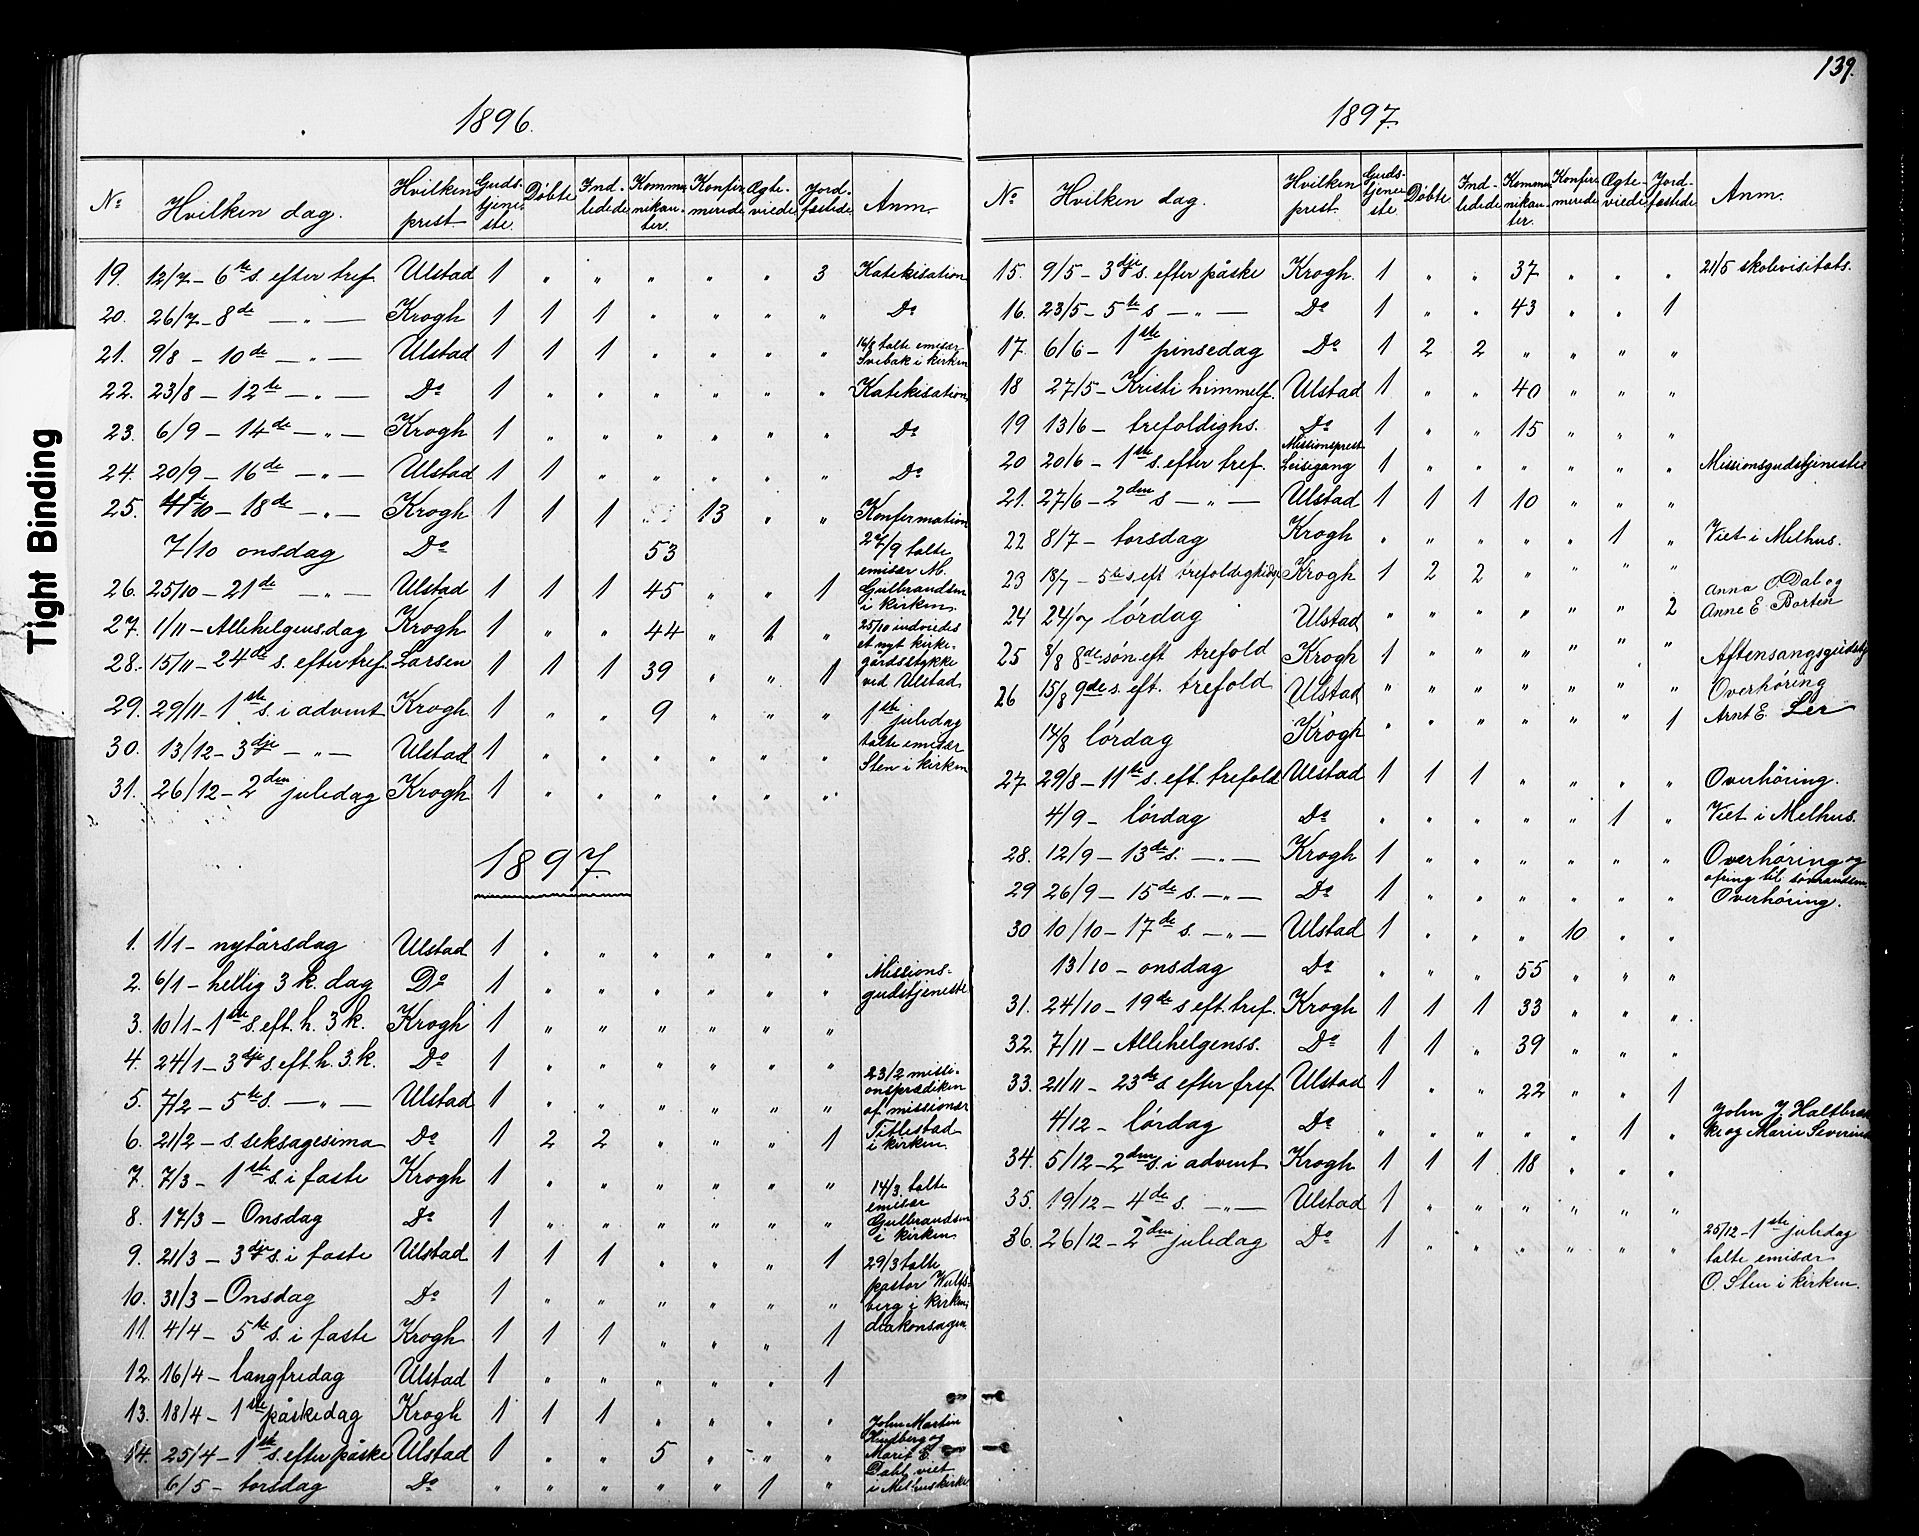 Tight Binding
1896.
No Hvilken dag. Hvilken prest. Gudstjeneste. Døbte Indledede Kommunikanter. Konfirmerede Ægteviede Jordfæstede Anm.
19. 12/7 – 6te s. efter tref. Ulstad 1 " " " " " 3 Katekisation
20. 26/7 – 8de — " — Krogh 1 1 1 " " " " Do
21. 9/8 – 10de — " — Ulstad 1 1 1 " " " " 16/8 talte emisær Svebak i kirken
22. 23/8 – 12te — " — Do 1 " " " " " " Katekisation
23. 6/9 – 14de — " — Krogh 1 " " " " " " Do
24. 20/9 – 16de — " — Ulstad 1 1 " " " " " Do
25. 4/10 – 18de — " — Krogh 1 1 1 13 " " Konfirmation
7/10 onsdag Do 53 27/9 talte emisær M. Gulbrandsen i kirken.
26. 25/10 – 21de — " — Ulstad 1 1 1 45 " " 1
27. 1/11 – Allehelgensdag Krogh 1 " " 44 " 1 " 25/10 indviedes et nyt kirkegårdsstykke ved Ulstad
28. 15/11 – 24de s. efter tref. Larsen 1 1 1 39 " " 1
29. 29/11 – 1ste s. i advent Krogh 1 " " 9 " " " 1ste juledag talte emisær Sten i kirken
30. 13/12 – 3dje — " — Ulstad 1 " " " " " "
31. 26/12 – 2den juledag Krogh 1 " " " " " "
1897.
1. 1/1 – nytårsdag Ulstad 1 " " " " " "
2. 6/1 – hellig 3 k. dag Do 1 " " " " " " Missionsgudstjeneste
3. 10/1 – 1ste s. eft. h. 3 k. Krogh 1 " " " " " "
4. 24/1 – 3dje s. eft. h. 3 k. Do 1 " " " " " "
5. 7/2 – 5te s. — " — Ulstad 1 " " " " " " 23/2 missionsprædiken af missionær Titlestad i kirken.
6. 21/2 – s. seksagesima Do 1 2 2 " " " 1
7. 7/3 – 1ste s. i faste Krogh 1 " " " " " " 14/3. talte emisær Gulbrandsen i kirken.
8. 17/3 – Onsdag Do 1 " " " " " "
9. 21/3 – 3dje s. i faste Ulstad 1 1 1 " " " 1 29/3 talte pastor Wulfsberg i kirken; diakonsagen.
10. 31/3 – Onsdag Do 1 " " " " " "
11. 4/4 – 5te s. i faste Krogh 1 1 1 " " " 1
12. 16/4 – langfredag Ulstad 1 " " " " " 1
13. 18/4 – 1ste påskedag Krogh 1 1 1 " " " "
14. 25/4 – 1ste s. efter påske Ulstad 1 " " 5 " " " John Martin Marit E. Dahl viet i Melhus kirke
6/5 – torsdag Do " " " " " 1 "
139.
1897.
No Hvilken dag. Hvilken prest. Gudstjeneste. Døbte Indledede Kommunikanter. Konfirmerede Ægteviede Jordfæstede Anm.
15. 9/5 – 3dje s. efter påske Krogh. 1 " " 37 " " " 21/5 skolevisitats.
16. 23/5 – 5te s — " — Do 1 " " 43 " " 1
17 6/6 – 1ste pinsedag Do 1 2 2 " " " "
18 27/5 – Kristi himmelf. Ulstad 1 " " 40 " " "
19 13/6 – trefoldighs. Do 1 " " 15 " " "
20 20/6 – 1ste s. efter tref. Missionsprest Leisegang 1 " " " " " " Missionsgudstjeneste
21. 27/6 – 2den s — " — Ulstad 1 1 1 10 " " "
22 8/7 – torsdag Krogh " " " " " 1 " Viet i Melhus.
23 18/7 – 5te s. eft trefoldighedss Krogh 1 2 2 " " " "
24 24/7 lørdag Ulstad " " " " " " 2 Anna O Dal og Anne E. Borten
25 8/8 8de søn eft trefold Krogh 1 " " " " " " Aftensangsgudstj
26 15/8 9de s. eft. trefold Ulstad " " " " " " " Overhøring
14/8 lørdag Krogh " " " " " " 1 Arnt E. Ler
27 29/8 – 11te s. eft. trefold Ulstad 1 1 1 " " " " Overhøring.
4/9 – lørdag Do " " " " " 1 " Viet i Melhus.
28. 12/9 – 13de s. — " — Krogh 1 " " " " " " Overhøring og ofring til
29 26/9 – 15de s. — " — Do 1 " " " " " " Overhøring.
30 10/10 – 17de s. — " — Ulstad 1 " " " 10 " "
13/10 – onsdag Do " " " 55 " " "
31. 24/10 – 19de s eft. tref. Krogh 1 1 1 33 " " "
32. 7/11 – Allehelgenss. Do 1 1 " 39 " " "
33. 21/11 – 23de s efter tref. Ulstad 1 " " 22 " " 1
4/12 – lørdag Do " " " " " 1 " John J. og Marie
34. 5/12 – 2den s. i advent Krogh 1 1 1 18 " " "
35. 19/12 – 4de s. — " — Ulstad 1 " " " " " "
36. 26/12 – 2den juledag Do 1 " " " " " " 25/12 – 1ste juledag
talte emisær
O. Sten i kirken.